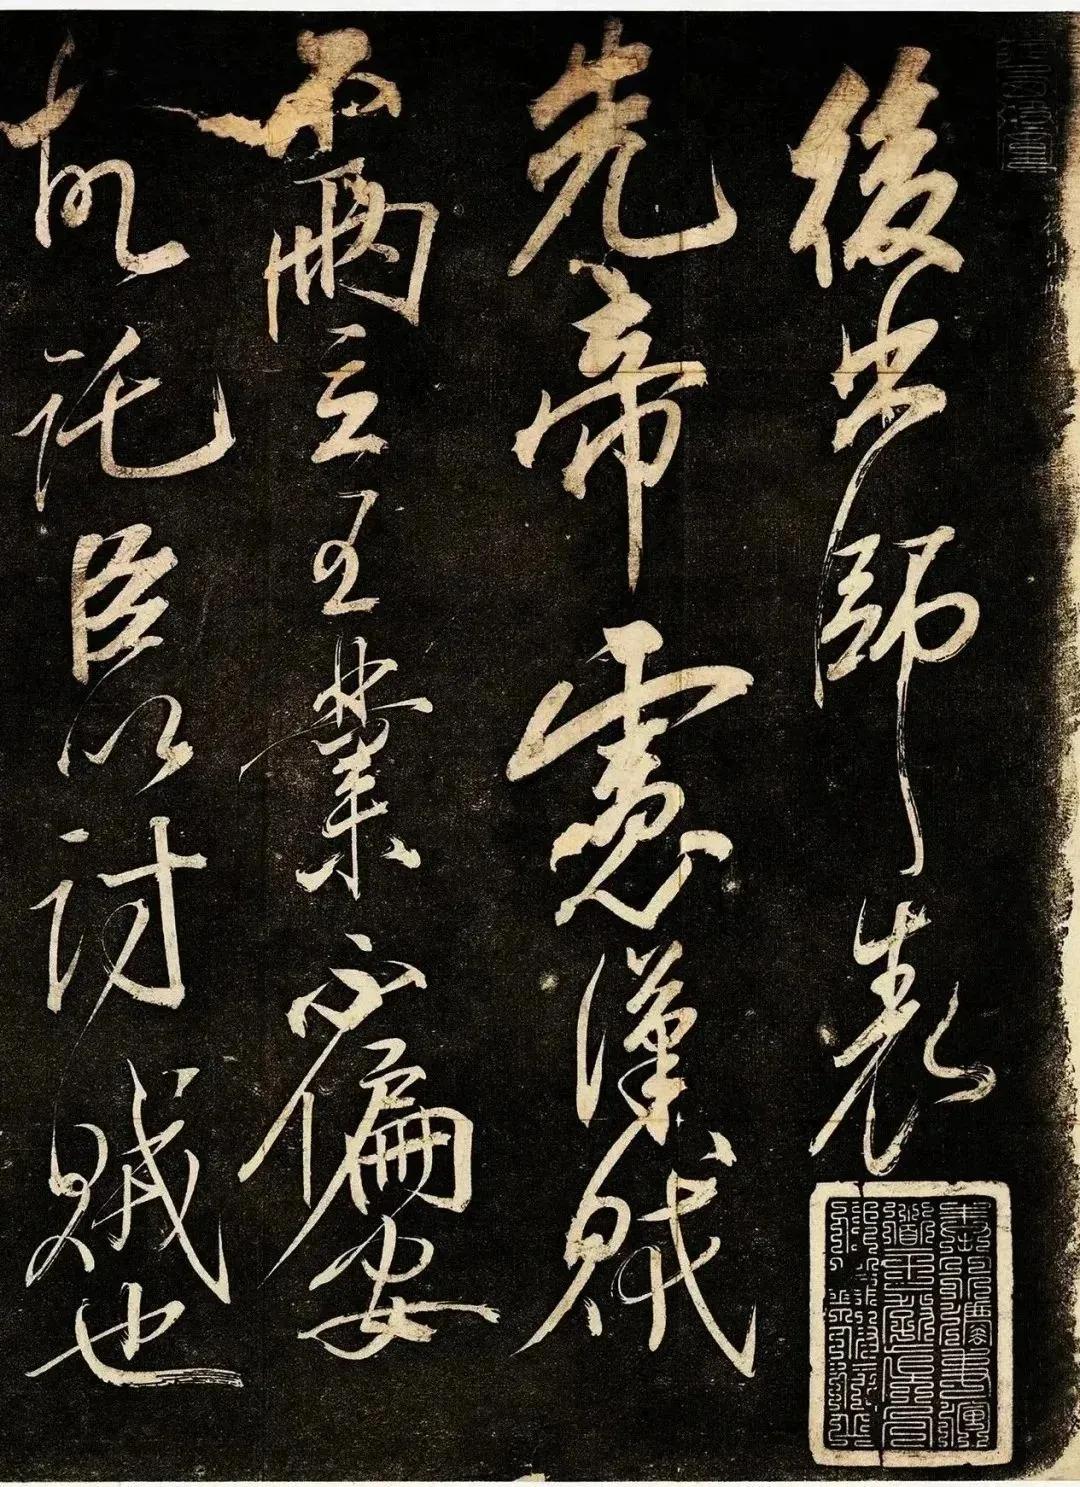 後出師表
先帝慮漢賊
不兩立王業不偏安
故託臣以討賊也